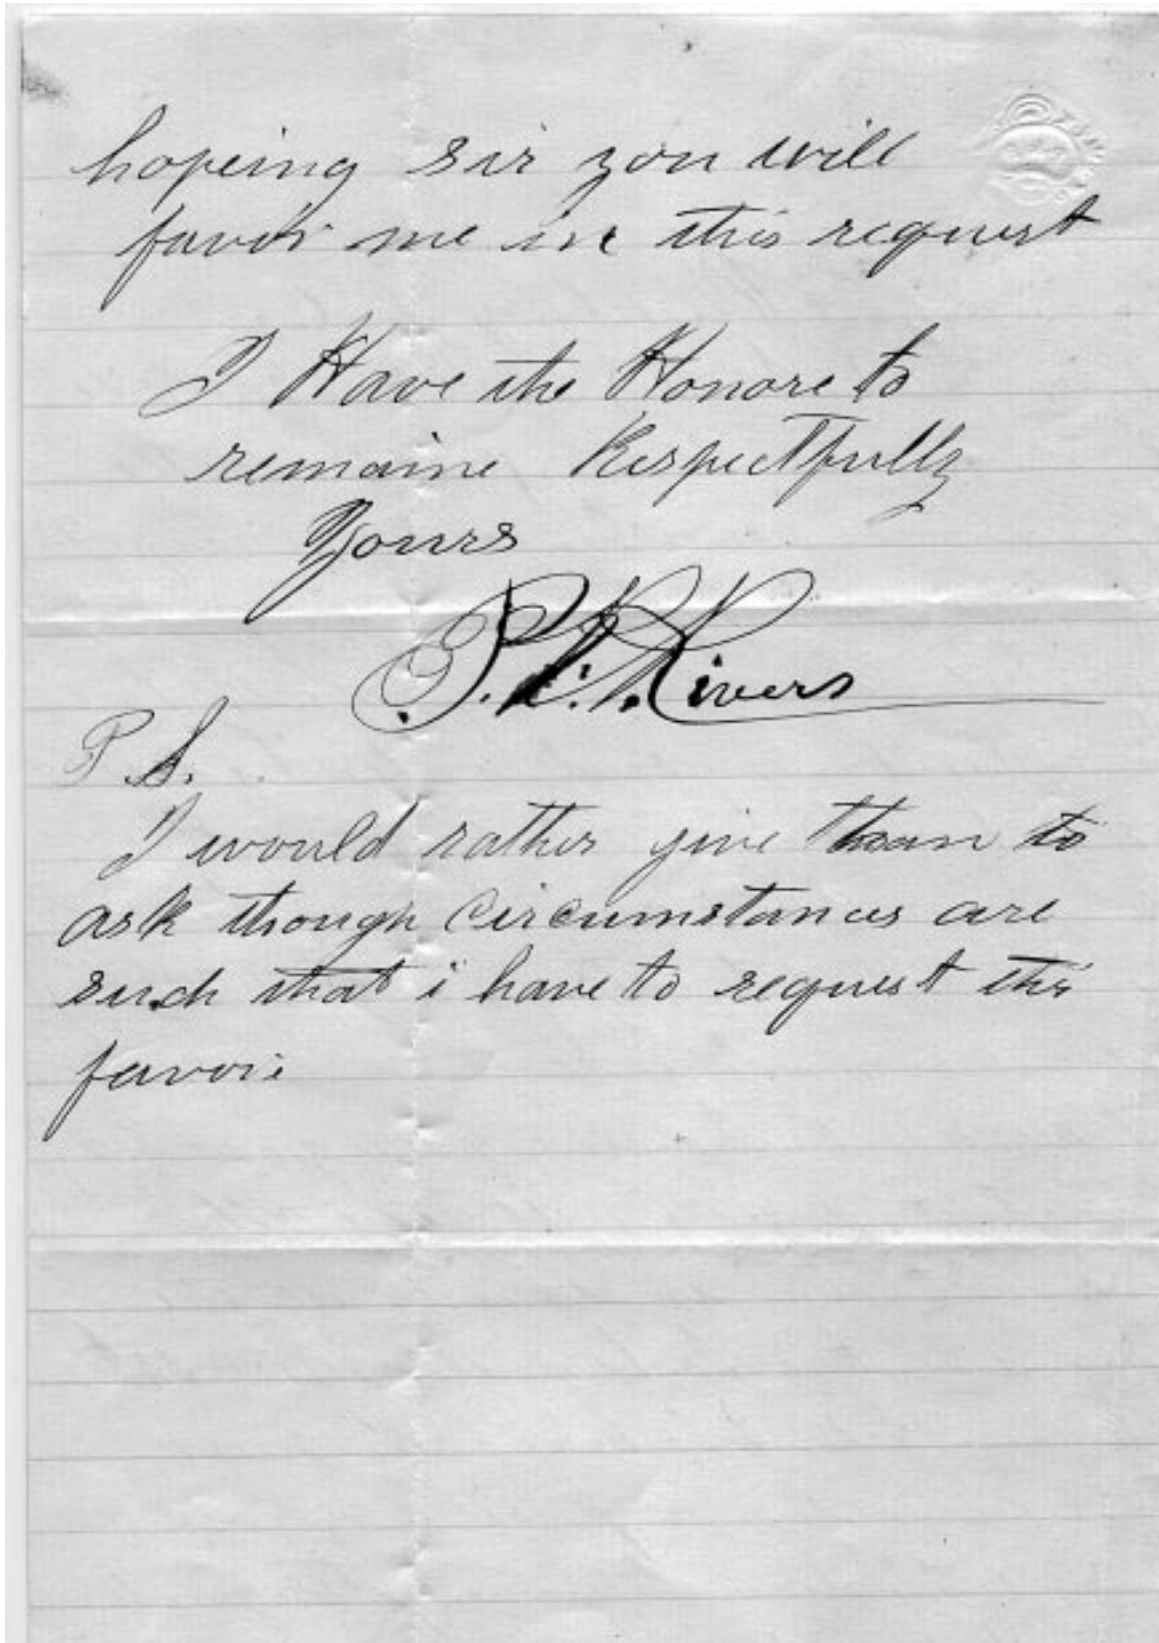 hopeing sir you will
favor me in this request
I Have the Honore to
remaine Respectfully
Yours
P. R. Rivers
P S.
I would rather give than to
ask though Circumstances are
such that i have to request this
favor.